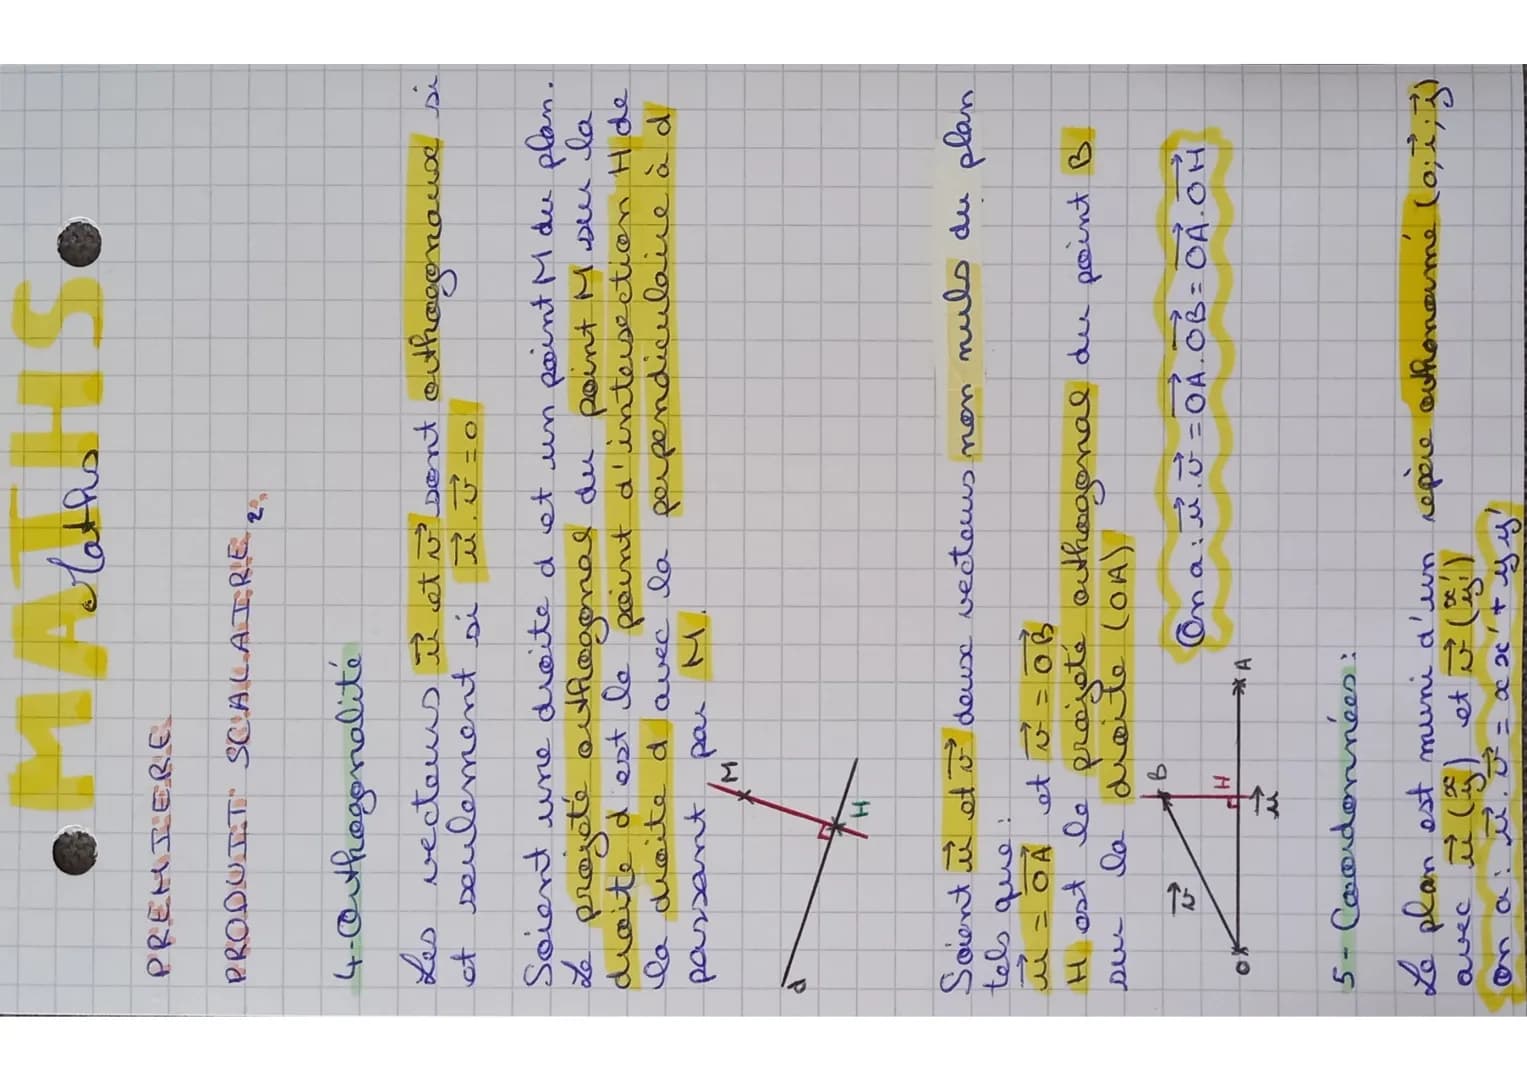 MATHS
Maths
PREMIERE
PRODUIT SCALAIRE 2.
4-Orthogonalité
Les vecteurs u⃗ et v⃗ sont orthogonaux si
et seulement si u⃗.v⃗=0
Soient une droite d et un point M du plan.
Le projeté orthogonal du point M sur la
droite d est le point d'intersection H de
la droite d avec la perpendiculaire à d
passant par M.
M
H
d
Soient u⃗ et v⃗ deux vecteurs non nuls du plan
tels que:
u⃗ = OA⃗ et v⃗ = OB⃗
H est le projeté orthogonal du point B
sur la droite (OA)
B
v⃗
H
O
A
u⃗
On a: u⃗.v⃗ = OA⃗.OB⃗ = OA⃗.OH⃗
5-Coordonnées:
Le plan est muni d'un repère orthonormé (o; i⃗, j⃗)
avec u⃗ (x y) et v⃗ (x' y')
On a: u⃗.v⃗ = xx' + yy'